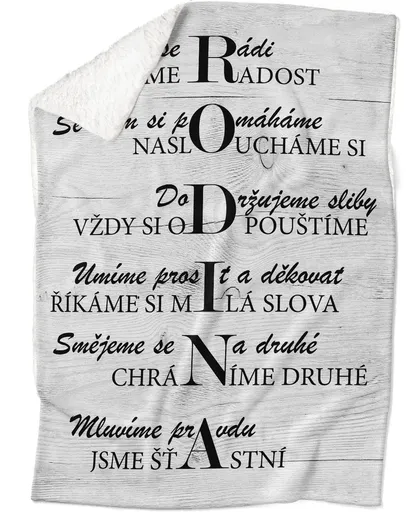 se Rádi
ME RADOST
Se m si pOmáháme
NASLOUCHÁME SI
DoDržujeme sliby
VŽDY SI ODPOUŠTÍME
Umíme prosIt a děkovat
ŘÍKÁME SI MILÁ SLOVA
Smějeme se Na druhé
CHRÁNÍME DRUHÉ
Mluvíme prAvdu
JSME ŠŤASTNÍ